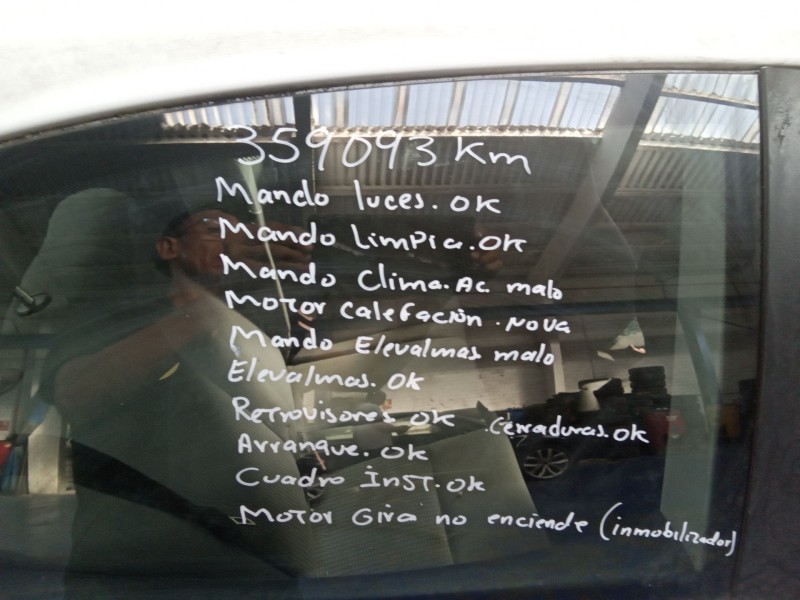 359093 Km
Mando luces. OK
Mando Limpia. OK
Mando Clima. Ac malo
Motor Calefación. no va
Mando Elevalunas malo
Elevalunas. OK
Retrovisores OK . Cerraduras. OK
Arranque. OK
Cuadro inst. OK
Motor Gira no enciende (inmobilizador)